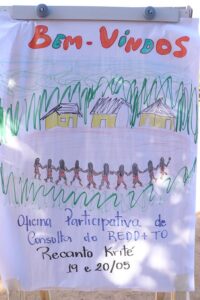 BEM-VINDOS
Oficina Participativa de
Consulta do REDD+ TO
Recanto Krité
19 e 20/05